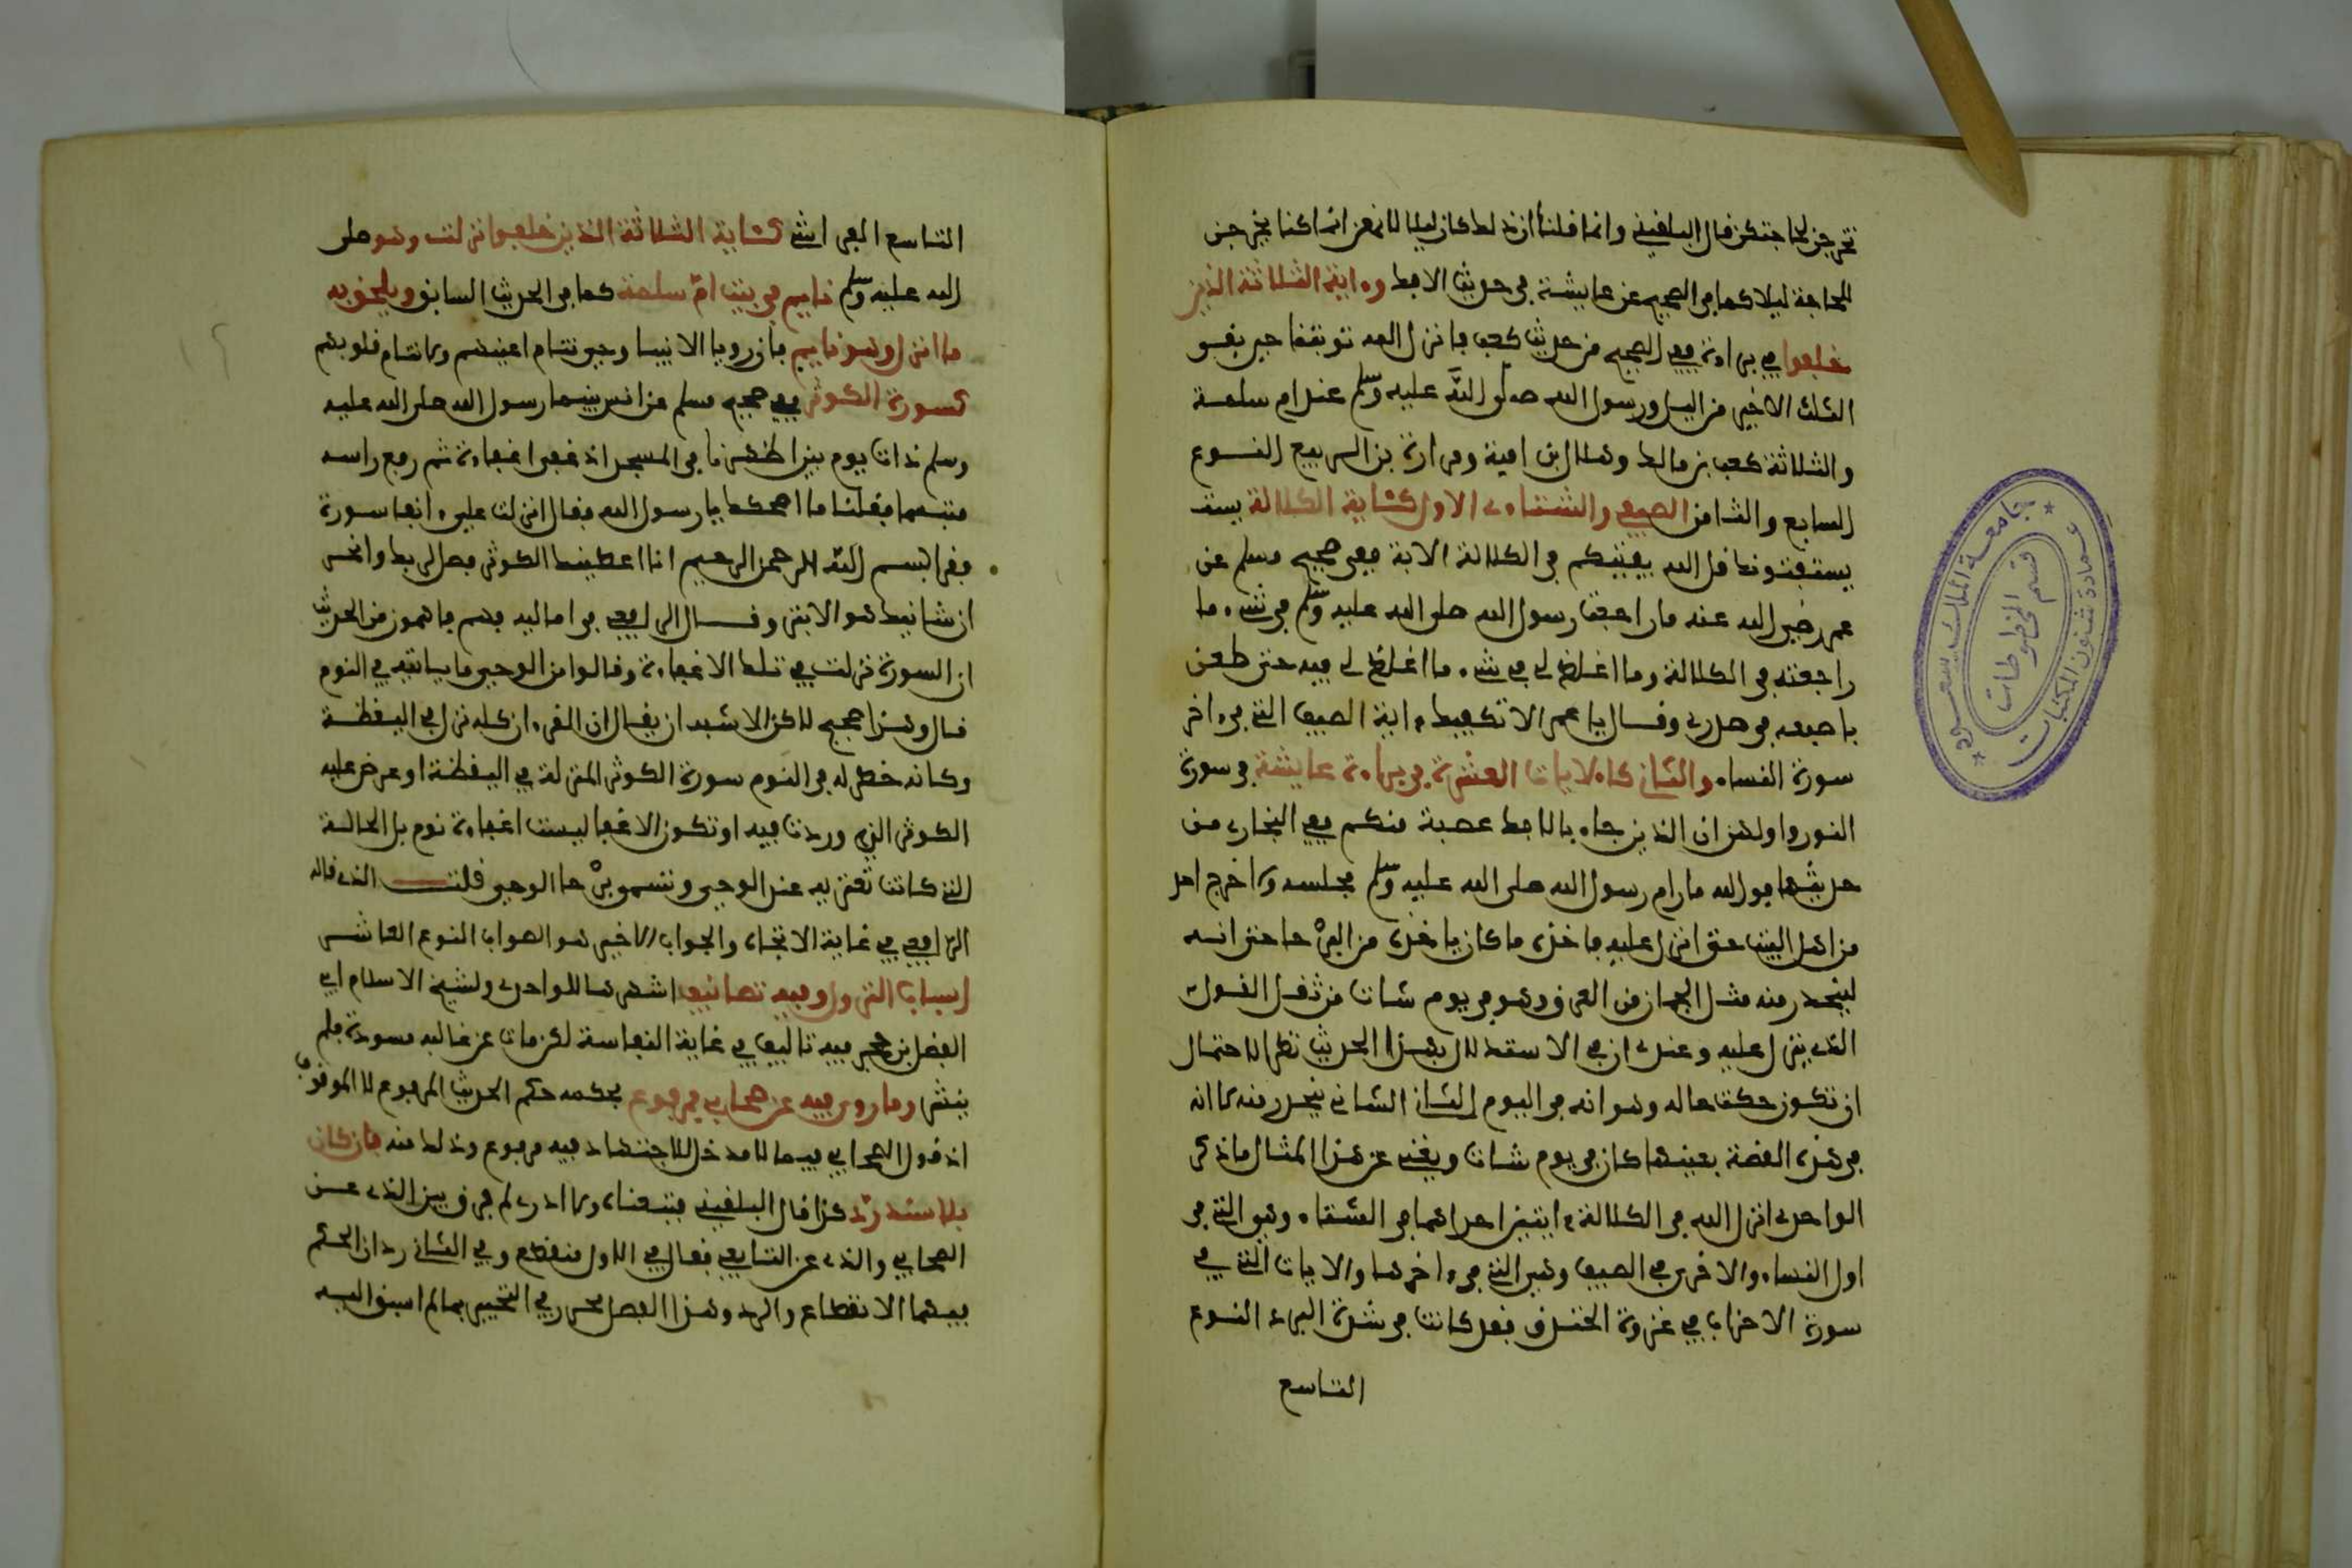 تخرجن لحاجتكن قال البلقيني وانما قلنا ان ذلك كان ليلا لانهن انما كن يخرجن
للحاجة ليلا كما في الصحيح عن عايشة في حديث الافك وءاية الثلاثة الذين
خلفوا في براءة ففي الصحيح من حديث كعب فانزل الله توبتنا حين بقي
الثلث الاخير من الليل ورسول الله صلى الله عليه وسلم عند ام سلمة
والثلاثة كعب بن مالك وهلال بن امية ومرارة بن الربيع النوع
السابع والثامن الصيفي والشتاءي الاول كئاية الكلالة يستـ
يستفتونك قل الله يفتيكم في الكلالة الاية ففي صحيح مسلم عن
عمر رضي الله عنه ما راجعت رسول الله صلى الله عليه وسلم في شيء ما
راجعته في الكلالة وما اغلظ لي في شيء ما اغلظ لي فيه حتى طعن
باصبعه في صدري وقال يا عمر الا تكفيك ءاية الصيف التي في ءاخر
سورة النساء والثاني كالايات العشرة في براءة عايشة في سورة
النور واولهن ان الذين جاءو بالافك عصبة منكم ففي البخاري من
حديثها فوالله ما رام رسول الله صلى الله عليه وسلم مجلسه ولا خرج احد
من اهل البيت حتى انزل عليه فاخذه ما كان ياخذه من البرحا حتى انه
ليتحدر منه مثل الجمان من العرق وهو في يوم شات من ثقل القول
الذي ينزل عليه وعندي ان في الاستدلال بهذا الحديث نظرا لاحتمال
ان تكون حكت حاله وهو انه في اليوم الشاتي يتحدر منه لا انه
في هذه القصة بعينها كان في يوم شات ويغني عن هذا المثال ما ذكر
الواحدي انزل الله في الكلالة ءايتين احداهما في الشتاء وهي التي في
اول النساء والاخرى في الصيف وهي التي في ءاخرها والايات التي في
سورة الاحزاب في غزوة الخندق فقد كانت في شدة البرد النوع
التاسع
التاسع الفراشي كئاية الثلاثة الذين خلفوا نزلت وهو صلى
الله عليه وسلم نايم في بيت ام سلمة كما في الحديث السابق ويلحق به
ما انزل وهو نايم فان رويا الانبيا وحي وتنام اعينهم ولا تنام قلوبهم
كسورة الكوثر ففي صحيح مسلم عن انس بينما رسول الله صلى الله عليه
وسلم ذات يوم بين اظهرنا في المسجد اذ غفى اغفاءة ثم رفع راسه
متبسما فقلنا ما اضحكك يا رسول الله فقال انزلت علي ءانفا سورة
فقرا بسم الله الرحمن الرحيم انا اعطينك الكوثر فصل لربك وانحر
ان شانيك هو الابتر وقال الرافعي في اماليه فهم فاهمون من الحديث
ان السورة نزلت في تلك الاغفاءة وقالوا من الوحي ما ياتيه في النوم
قال وهذا صحيح لاكن الاشبه ان يقال ان القرءان كله نزل في اليقظة
وكانه خطر له في النوم سورة الكوثر المنزلة في اليقظة او عرض عليه
الكوثر الذي وردت فيه او تكون الاغفا ليست اغفاءة نوم بل الحالة
التي كانت تعتريه عند الوحي وتسمى برحا الوحي قلت الذي قاله
الرافعي في غاية الاتجاه والجواب الاخير هو الصواب النوع العاشر
اسباب النزول وفيه تصانيف اشهرها للواحدي ولشيخ الاسلام ابي
الفضل بن حجر فيه تاليف في غاية النفاسة لكن مات عن غالبه مسودة فلم
ينتشر وما روى فيه عن صحابي فمرفوع بحكمه حكم الحديث المرفوع لا الموقوف
اذ قول الصحابي فيما لا مدخل للاجتهاد فيه مرفوع وذلك منه فان كان
بلا سند رد كذا قال البلقيني فتبعناه ولا ادري لم فرق بين الذي عن
الصحابي والذي عن التابعي فقال في الاول منقطع وفي الثاني رد ان الحكم
فيهما الانقطاع والرد وهذا الفصل محرر في التحبير بما لم اسبق اليه
جامعة الملك سعود
عمادة شئون المكتبات
قسم المخطوطات